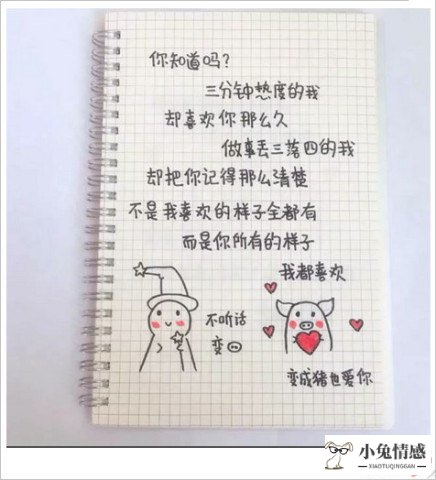 你知道吗?
三分钟热度的我
却喜欢你那么久
做事丢三落四的我
却把你记得那么清楚
不是我喜欢的样子全都有
而是你所有的样子
我都喜欢
不听话
变
变成猪也爱你
小兔情感
XIAOTUQINGGAN